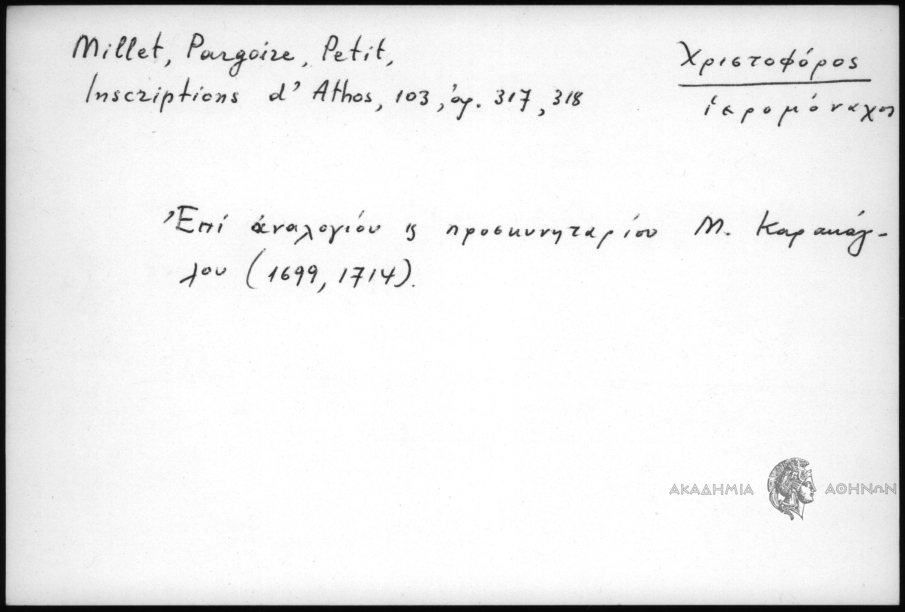 Millet, Pargoire, Petit,
Inscriptions d' Athos, 103, ἀρ. 317, 318
Χριστοφόρος
ἱερομόναχος
Ἐπί ἀναλογίου ϗ προσκυνηταρίου Μ. Καρακάλ-
λου (1699, 1714).
ΑΚΑΔΗΜΙΑ ΑΘΗΝΩΝ